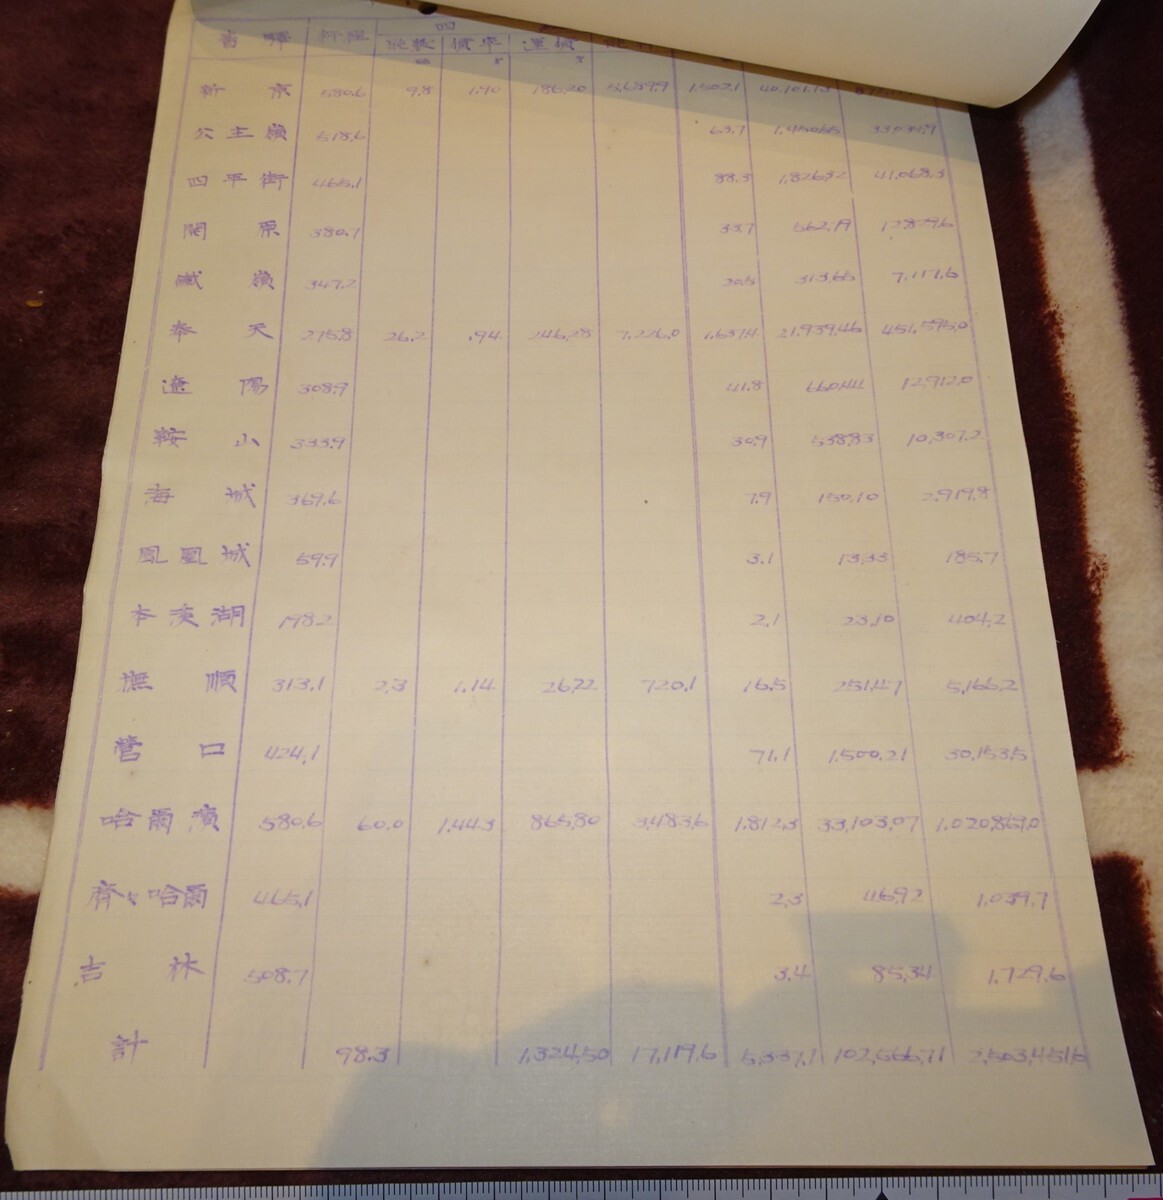 着 驛 行程 四
屯数 賃率 運賃
新 京 580.6 9.8 1.90 186.20 5,689.9 1,502.1
公主嶺 518.6 63.7 1,450.65
四平街 465.1 88.3 1,826.32 41,068.3
開 原 380.7 33.7 562.79 12,829.6
鐵 嶺 347.2 20.5 313.65 7,117.6
奉 天 275.8 26.2 .94 246.28 7,226.0 1,637.4 21,939.46 451,595.0
遼 陽 308.9 41.8 660.44 12,912.0
鞍 山 333.9 30.9 538.83 10,307.2
海 城 369.6 7.9 150.10 2,919.8
鳳凰城 59.9 3.1 13.33 185.7
本渓湖 198.2 2.1 23.10 404.2
撫 順 313.1 2.3 1.14 26.22 720.1 16.5 251.47 5,166.2
營 口 424.1 71.1 1,500.21 30,153.5
哈爾濱 580.6 60.0 1,443 865.80 3,483.6 1,812.3 33,103.07 1,020,869.0
齊々哈爾 465.1 2.3 46.92 1,039.7
吉 林 508.7 3.4 85.34 1,729.6
計 98.3 1,324.50 17,119.6 5,337.1 102,566.71 2,503,451.6